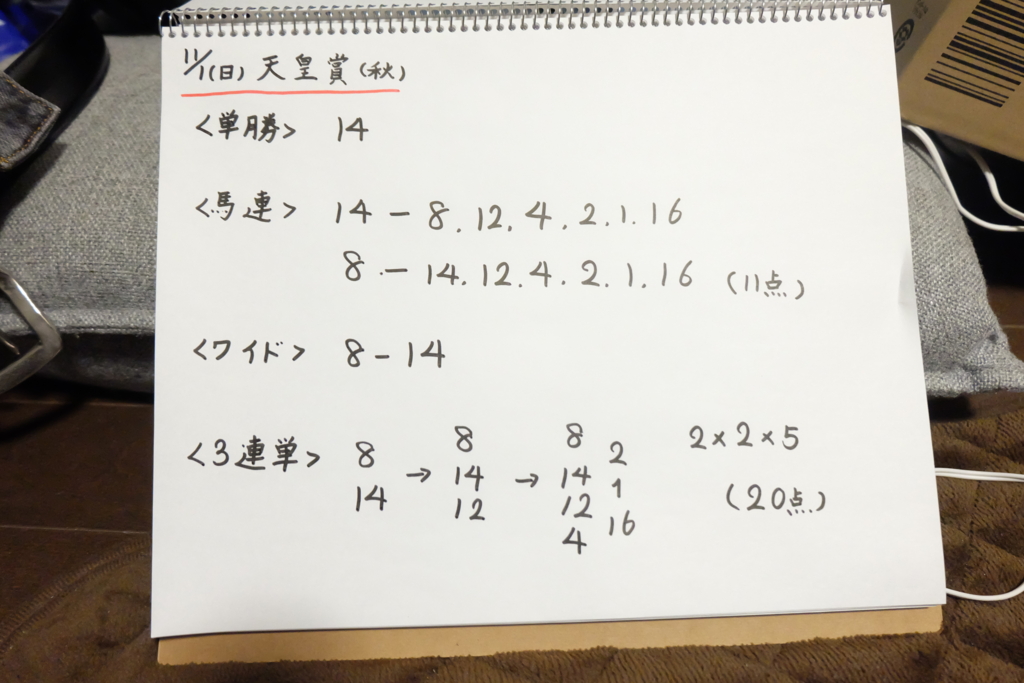 11/1(日) 天皇賞(秋)
<単勝> 14
<馬連> 14 - 8. 12. 4. 2. 1. 16
8 - 14. 12. 4. 2. 1. 16 (11点)
<ワイド> 8 - 14
<3連単> 8 → 8 → 8 2 2×2×5
14 14 14 1
12 12 16 (20点)
4